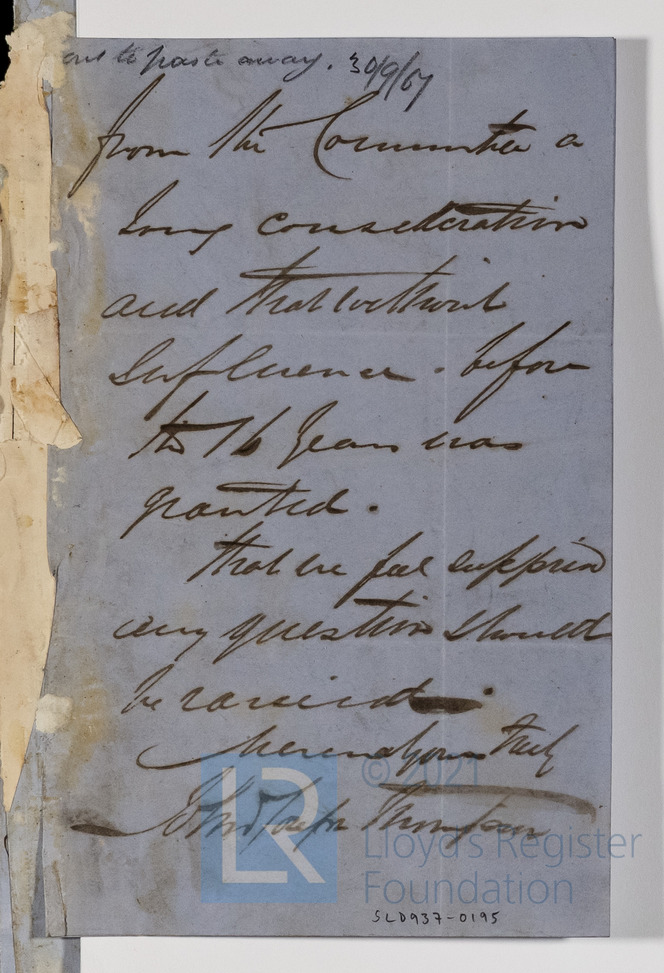 to paste away. 30/9/67
from the Committee a
long consideration
and that without
Influence. before
the 16 Years was
granted.
that we feel supprisd
any question should
be raised.
Yours truly
John Thompson
LR
© 2021
Lloyd's Register
Foundation
SLD937-0195